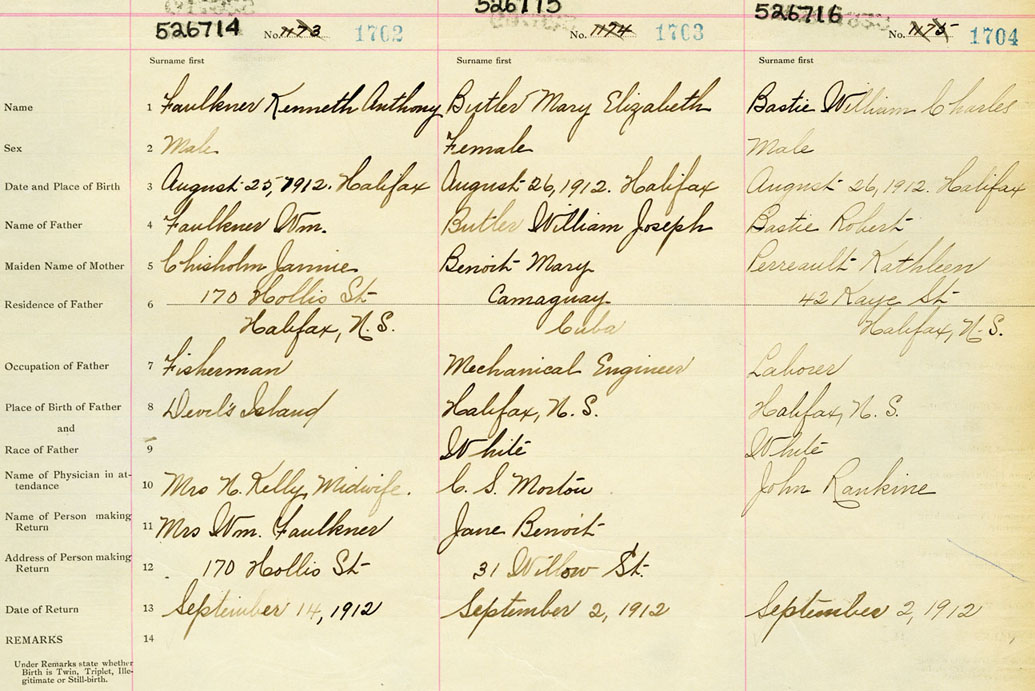 526714 No. 1173 1702 526715 No. 1174 1703 526716 No. 1175 1704
Surname first Surname first Surname first
Name 1 Faulkner Kenneth Anthony Butler Mary Elizabeth Bastie William Charles
Sex 2 Male Female Male
Date and Place of Birth 3 August 25, 1912. Halifax August 26, 1912. Halifax August 26, 1912. Halifax
Name of Father 4 Faulkner Wm. Butler William Joseph Bastie Robert
Maiden Name of Mother 5 Chisholm Jannie Benoit Mary Perreault Kathleen
Residence of Father 6 170 Hollis St Camaguay 42 Kaye St
Halifax, N.S. Cuba Halifax, N.S.
Occupation of Father 7 Fisherman Mechanical Engineer Laborer
Place of Birth of Father 8 Devil's Island Halifax, N.S. Halifax, N.S.
and
Race of Father 9 White White
Name of Physician in at-
tendance 10 Mrs N. Kelly Midwife. C. S. Morton John Rankine
Name of Person making
Return 11 Mrs Wm. Faulkner Jane Benoit
Address of Person making
Return 12 170 Hollis St 31 Willow St.
Date of Return 13 September 14, 1912 September 2, 1912 September 2, 1912
REMARKS 14
Under Remarks state whether
Birth is Twin, Triplet, Ille-
gitimate or Still-birth.